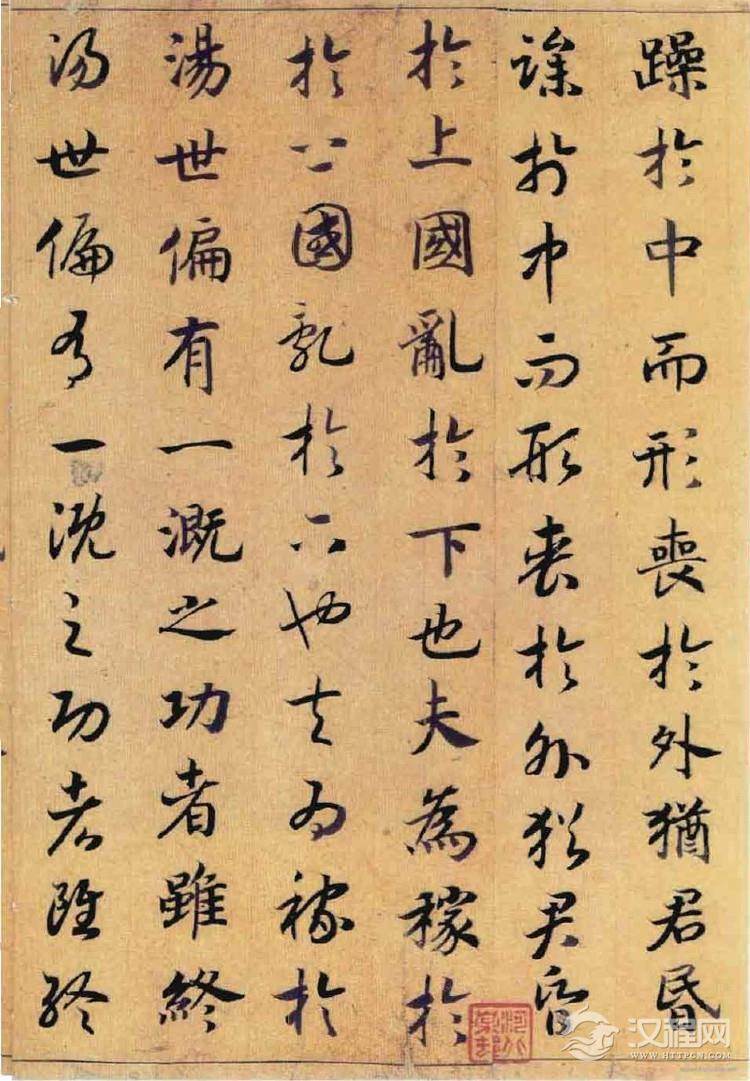 躁於中而形喪於外猶君昏
躁於中而形喪於外猶君昏
於上國亂於下也夫為稼於
於上國亂於下也夫為稼於
湯世偏有一溉之功者雖終
湯世偏有一溉之功者雖終
汉程网
WWW.HTTPCN.COM